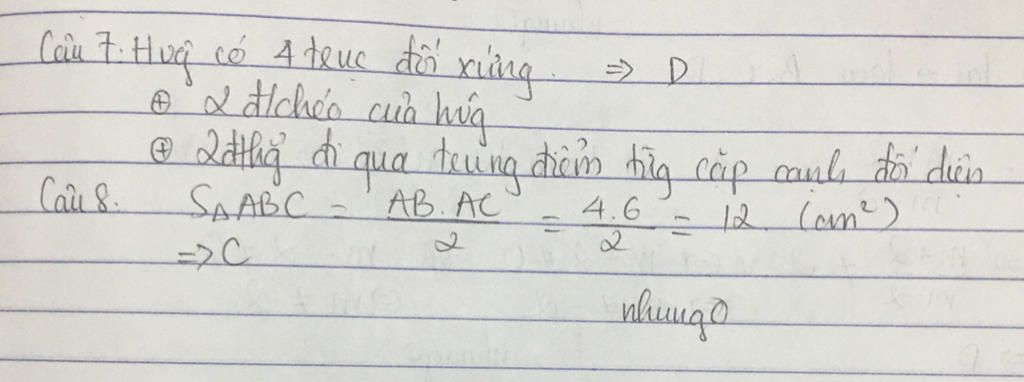 Câu 7: Hvg̃ có 4 trục đối xứng. => D
⊕ 2 đ/chéo của hvg
⊕ 2 đthg̉ đi qua trung điểm từg cặp cạnh đối diện
Câu 8. SΔABC = AB.AC/2 = 4.6/2 = 12 (cm²)
=> C
nhung0